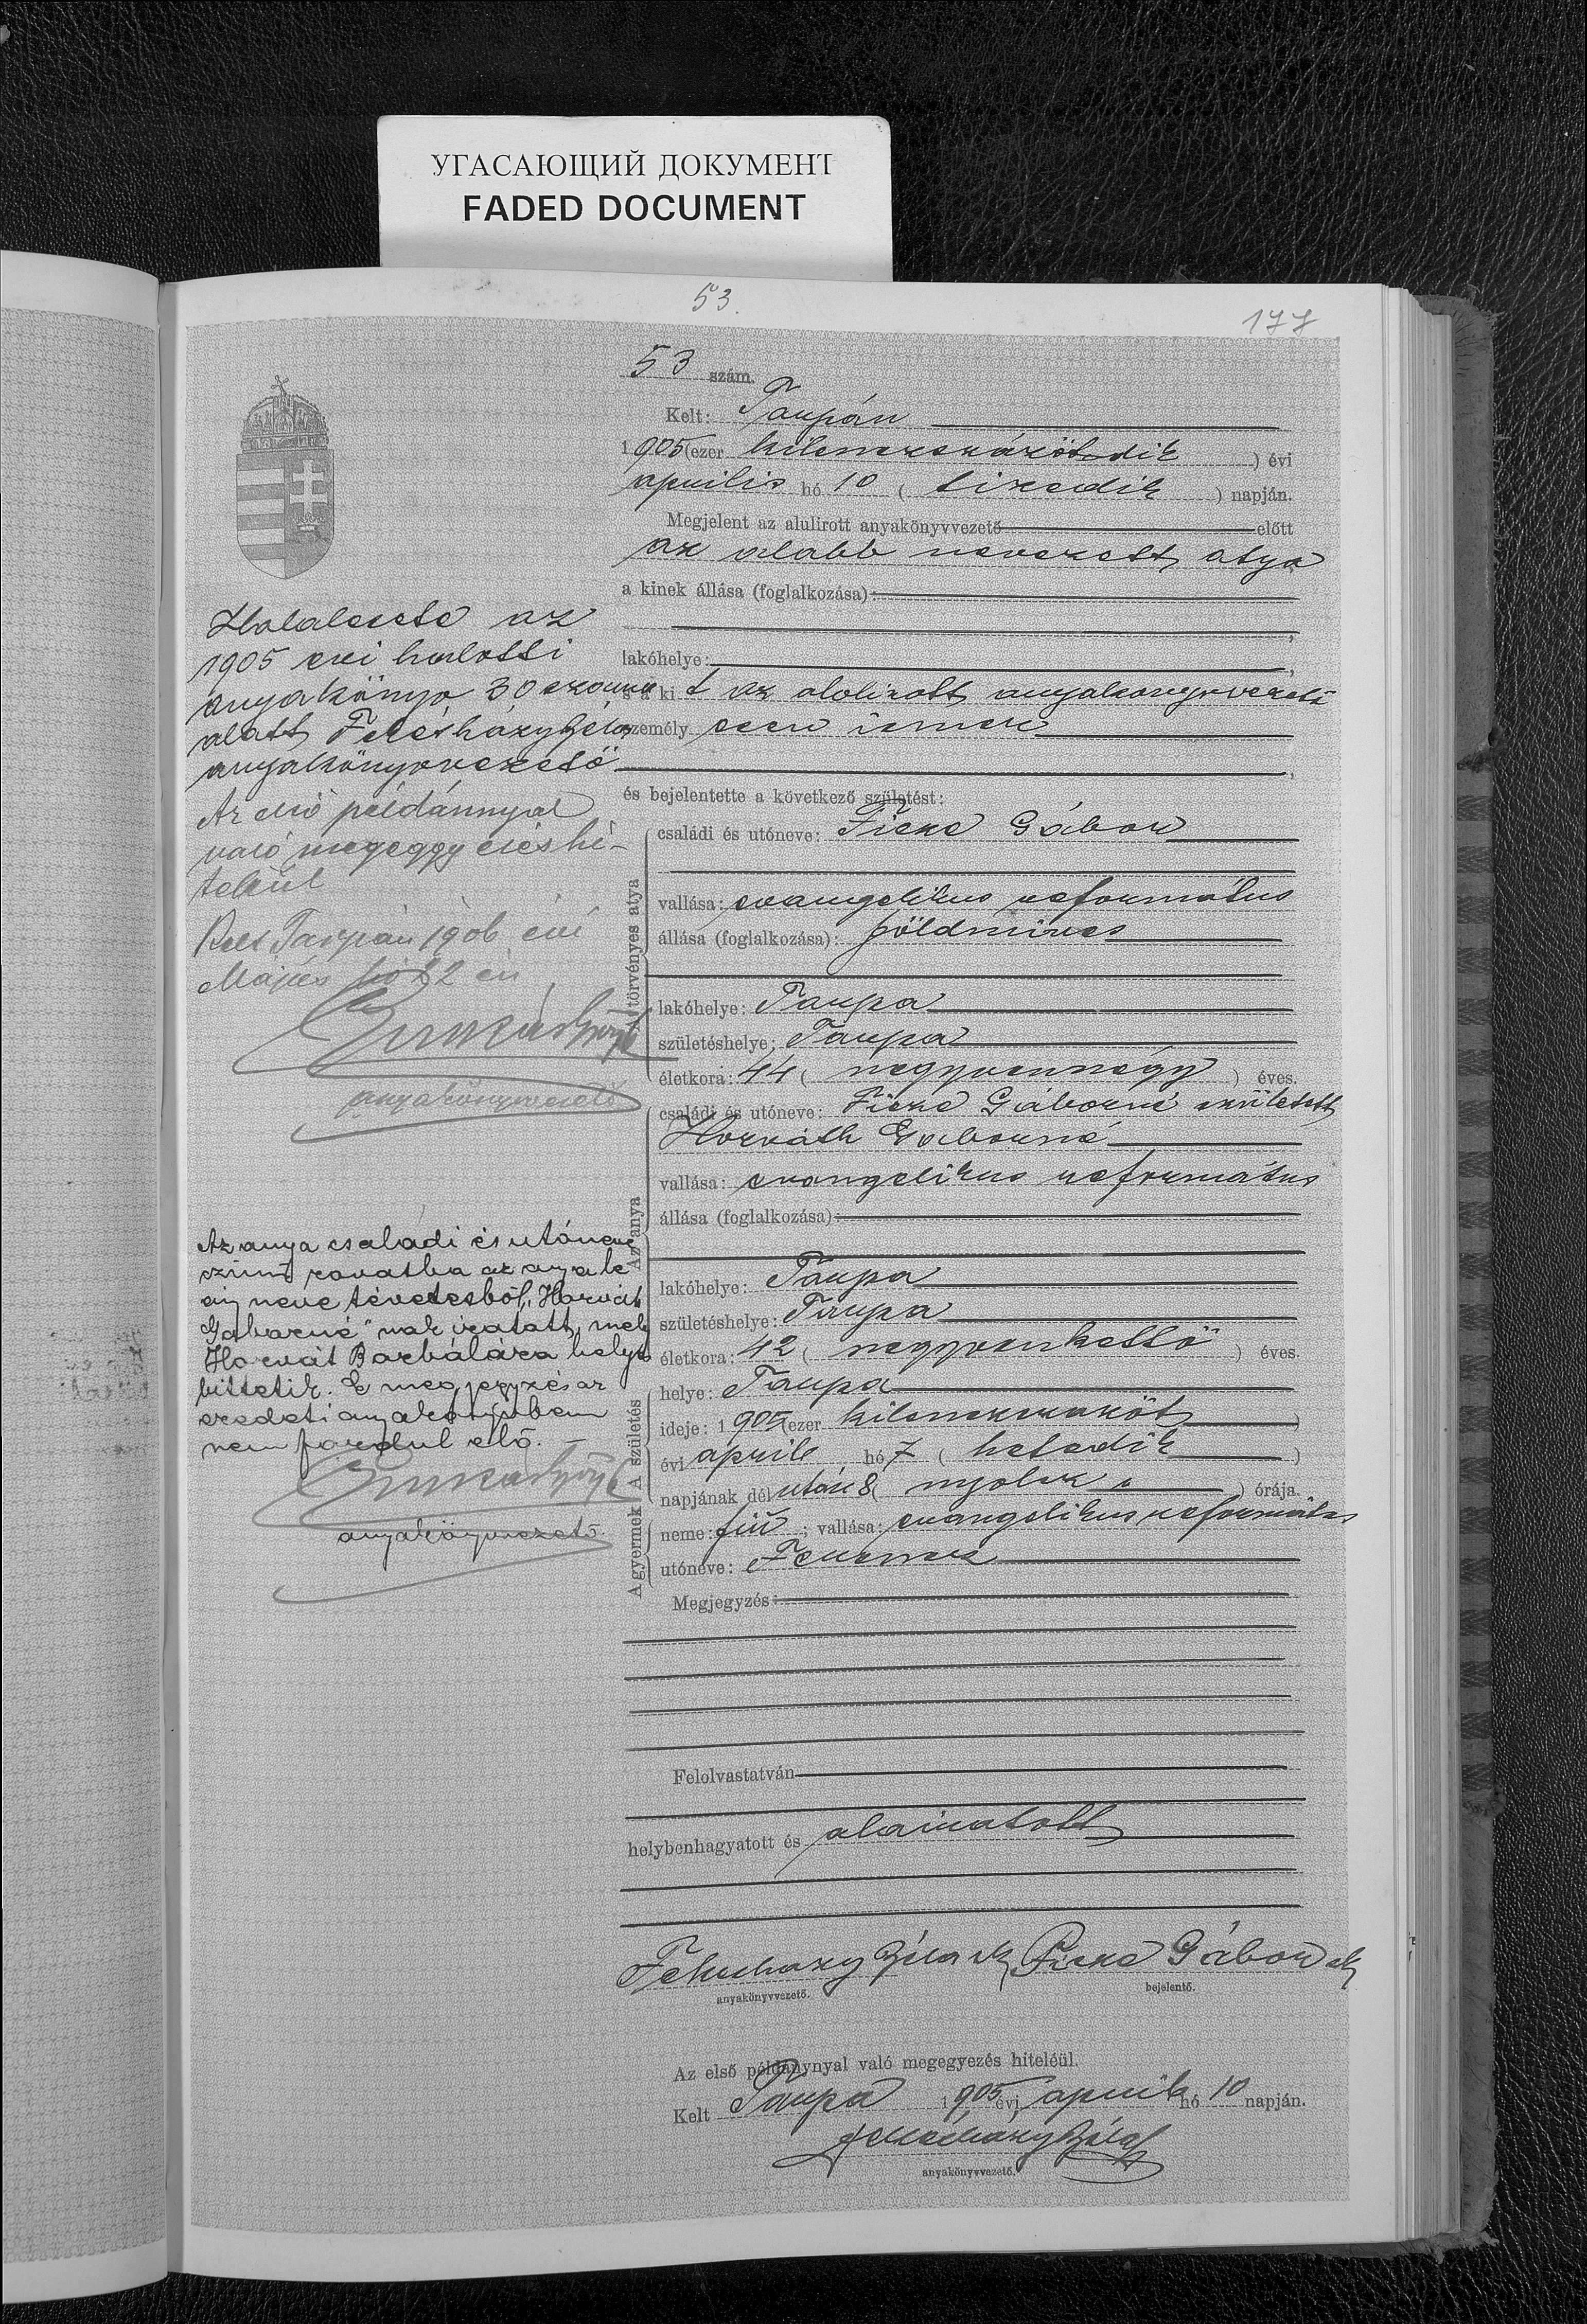 УГАСАЮЩИЙ ДОКУМЕНТ
FADED DOCUMENT
53.
177
53 szám.
Kelt: Tarpán
1905 (ezer kilenczszázötödik ) évi
április hó 10 ( tizedik ) napján.
Megjelent az alulirott anyakönyvvezető előtt
az alabb nevezett atya
a kinek állása (foglalkozása):
lakóhelye:
s a ki t az alolirott anyakönyvvezető
személy esen ismer
és bejelentette a következő születést:
A törvényes atya
családi és utóneve: Ficze Gábor
vallása: evangelikus református
állása (foglalkozása): földmives
lakóhelye: Tarpa
születéshelye: Tarpa
életkora: 44 ( negyvennégy ) éves.
Az anya
családi és utóneve: Ficze Gáborné született
Horváth Gaborné
vallása: evangelikus református
állása (foglalkozása):
lakóhelye: Tarpa
születéshelye: Tarpa
életkora: 42 ( negyvenkettő ) éves.
A születés
helye: Tarpa
ideje: 1905 (ezer kilenczszazöt )
évi april hó 7 ( hetedik )
napjának délután 8 ( nyolcz ) órája.
A gyermek
neme: fiú ; vallása: evangelikus református
utóneve: Ferencz
Megjegyzés:
Felolvastatván
helybenhagyatott és aláiratott
Feketeházy Béla sk Ficze Gábor sk
anyakönyvvezető. bejelentő.
Az első példánynyal való megegyezés hiteléül.
Kelt Tarpa 1905 évi april hó 10 napján.
anyakönyvvezető.
Halálesete az
1905 evi halotti
anyakönyv 30 szama
alatt
anyakönyvvezető
Az első példánnyal
való megeggyezés hi-
teléül
Kelt Tarpán 1906 évi
Május hó 22 én
anyakönyvvezető
Az anya családi és utóneve
czimű rovatba az anya le-
ány neve tévedésből "Horvát
Gáborné" nak iratott, mely
Horvát Borbálára helyes
bittetik. E megjegyzés az
eredeti anyakönyvben
nem fordul elő. —
anyakönyvvezető.